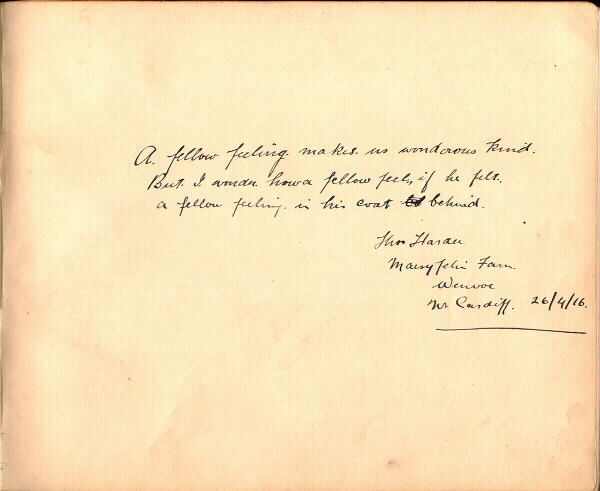 A fellow feeling makes us wonderous kind.
But I wonder how a fellow feels, if he felt.
a fellow feeling in his coat behind.
Thos Harder
Farm.
Wenvoe
Nr Cardiff. 26/4/16.